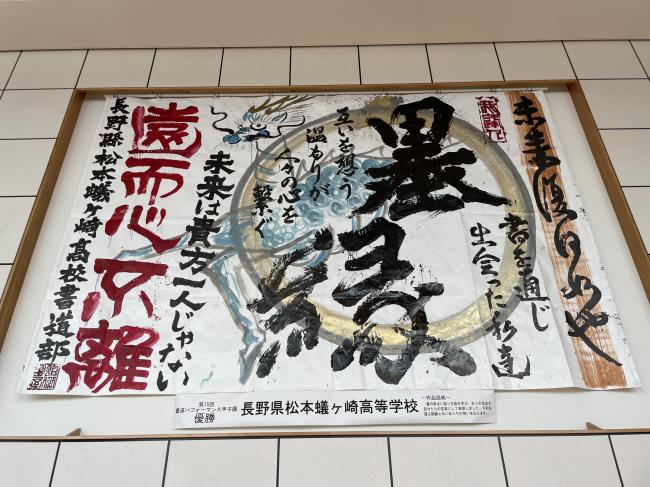 書を通じ
出会った私達
墨縁
互いを想う
温もりが
人々の心を
繋ぐ
未来は貴方一人じゃない
遠而心不離
長野縣松本蟻ヶ崎高校書道部
第15回
書道パフォーマンス甲子園
優勝
長野県松本蟻ヶ崎高等学校
―作品説明―